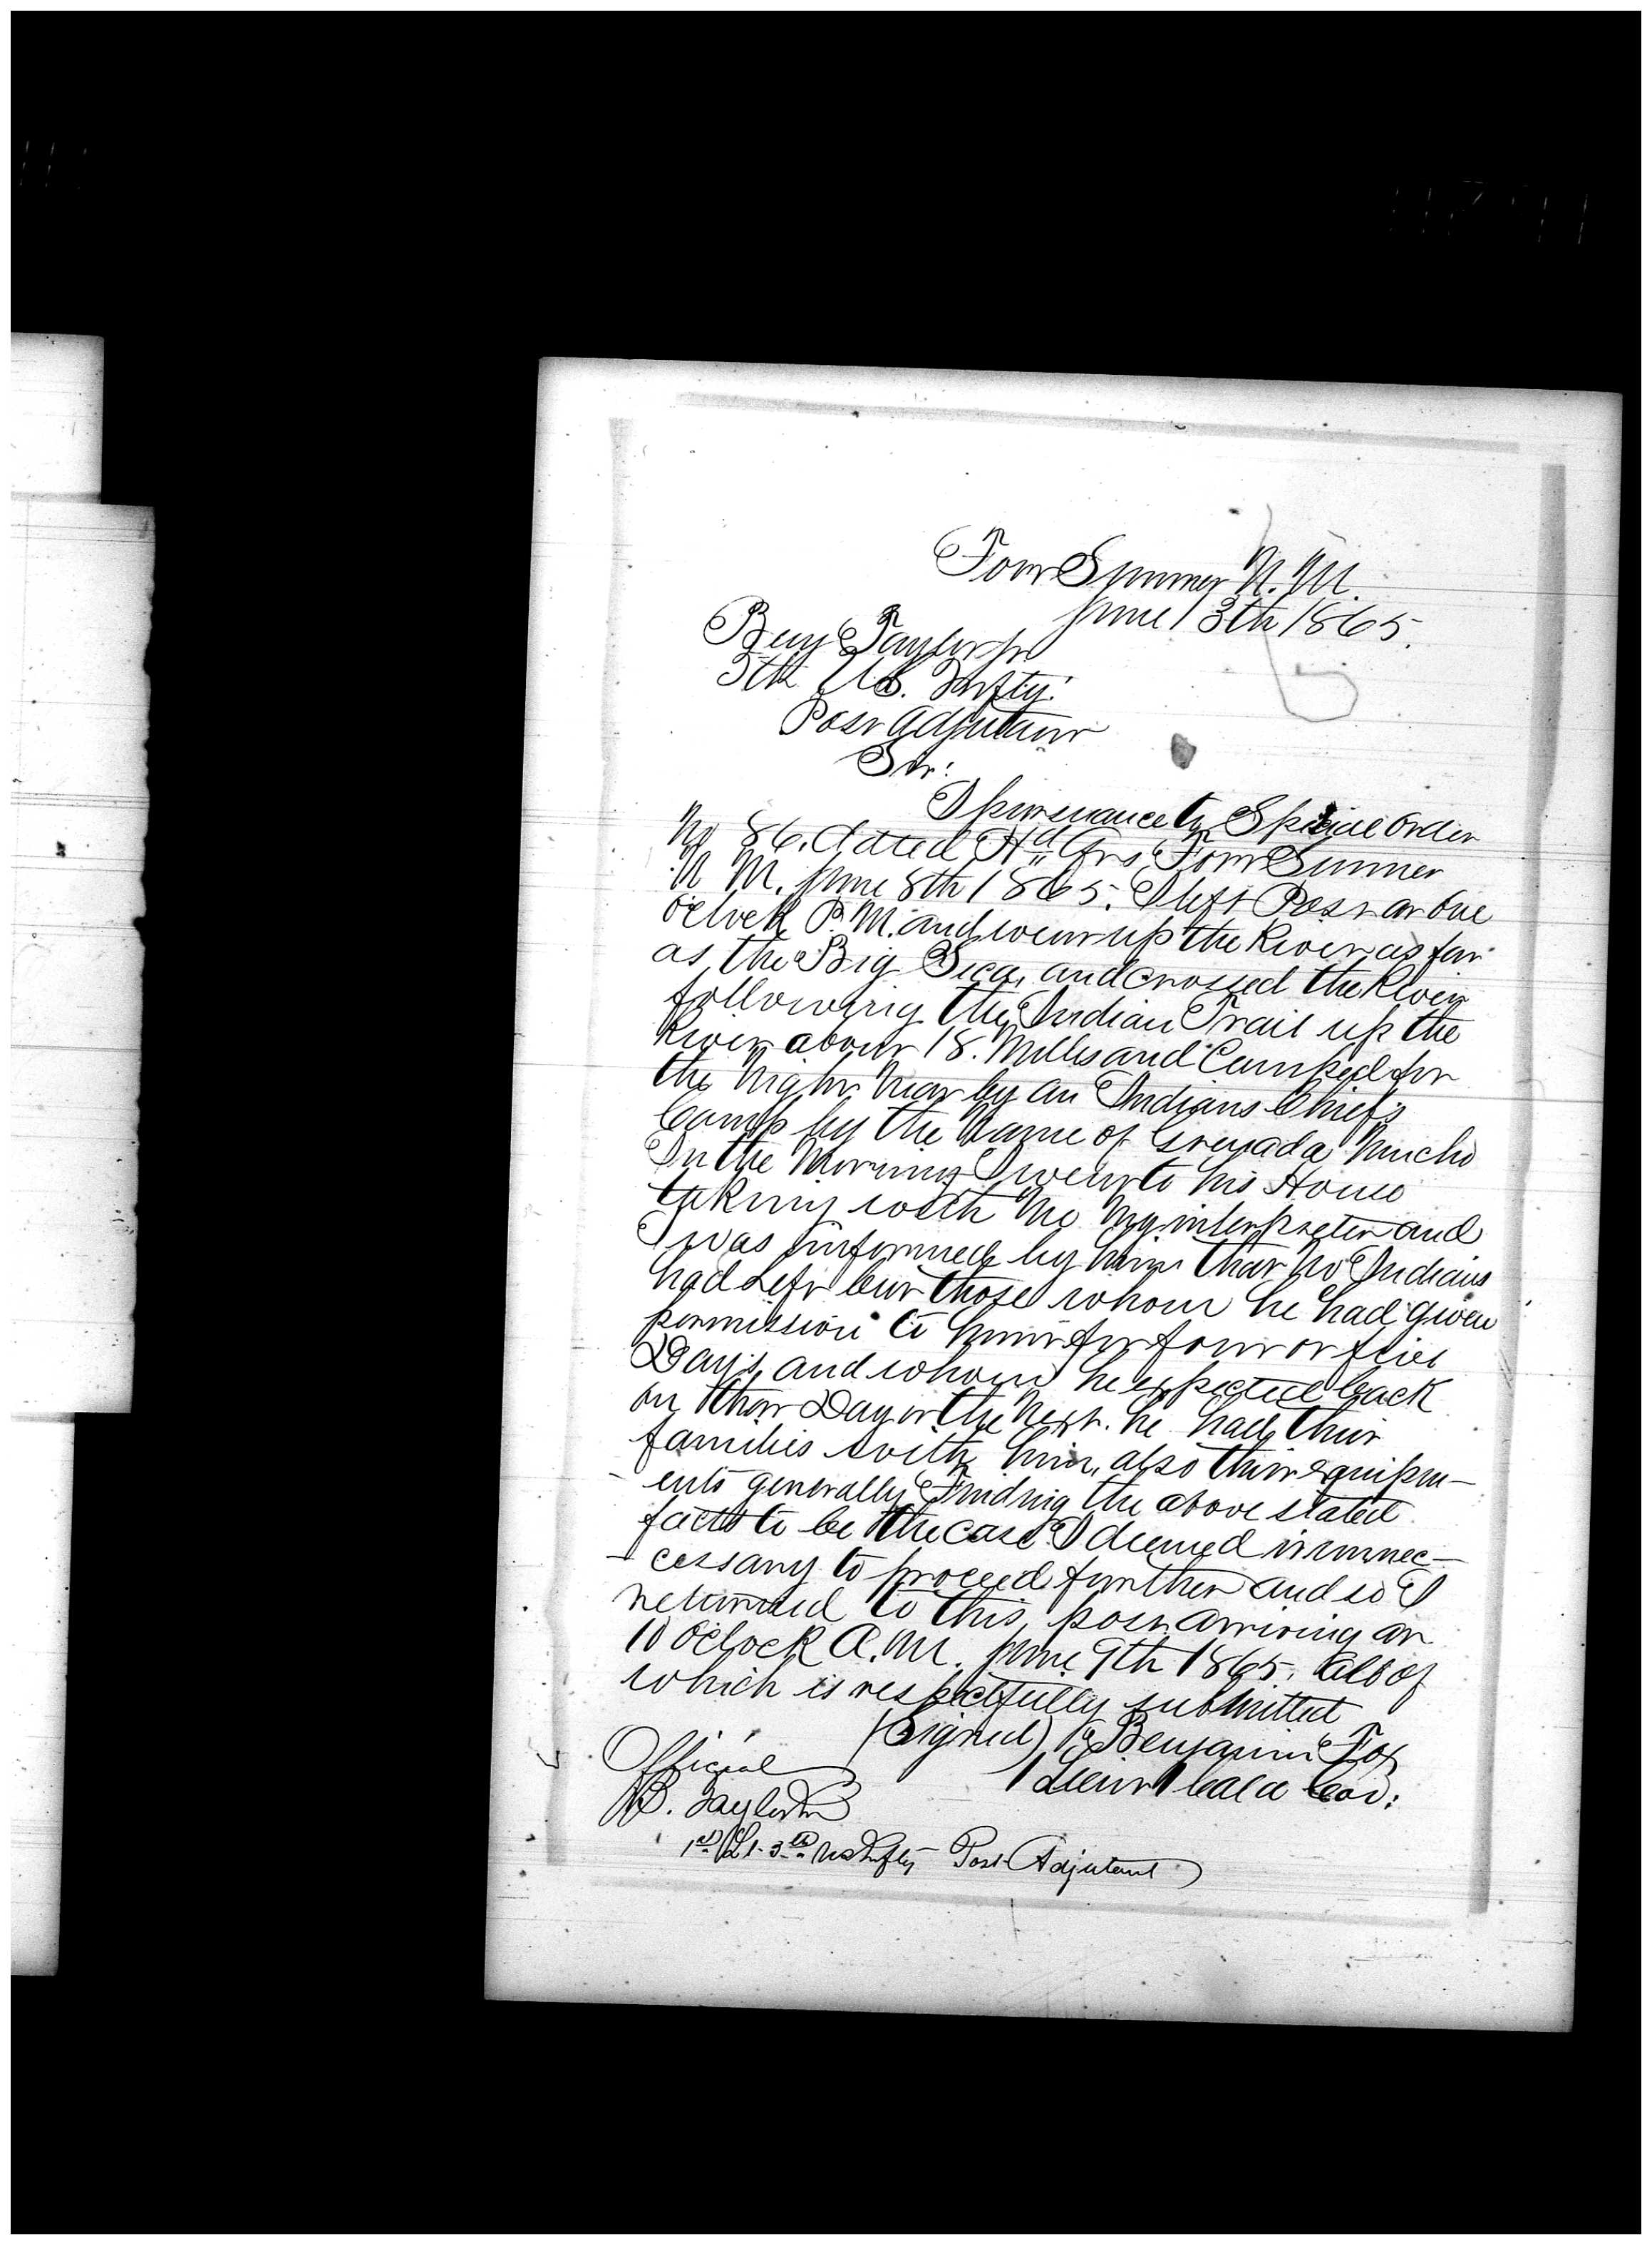 Fort Sumner N. M.
June 13th 1865.
Benj Taylor Jr
5th U.S. Infty.
Post Adjutant
Sir:
I pursuance to Special Order
No 86. dated Hd Qrs Fort Sumner
N M. June 8th 1865. I left Post at one
oclock P. M. and went up the River as far
as the Big Seca, and crossed the River
following the Indian Trail up the
River about 18. Milles and Camped for
the Night near by an Indians Chiefs
Camp by the Name of Grenada Mucho
In the Morning I went to his House
taking with Me My interpreter and
I was informed by him that No Indians
had Left but those whom he had given
permission to hunt for four or five
Days, and whom he expected back
on that Day or the Next. he had their
families with him, also their equipm-
-ents generally Finding the above stated
facts to be the case I deemed it unnec-
-cessary to proceed further and so I
returned to this, post arriving at
10 Oclock A.M. June 9th 1865. All of
which is respectfully submitted
(Signed) Benjamin Fox
1 Lieut 1 Cal a Cav:
Official
B. Taylor Jr
1st Lt. 5th US Infty Post Adjutant